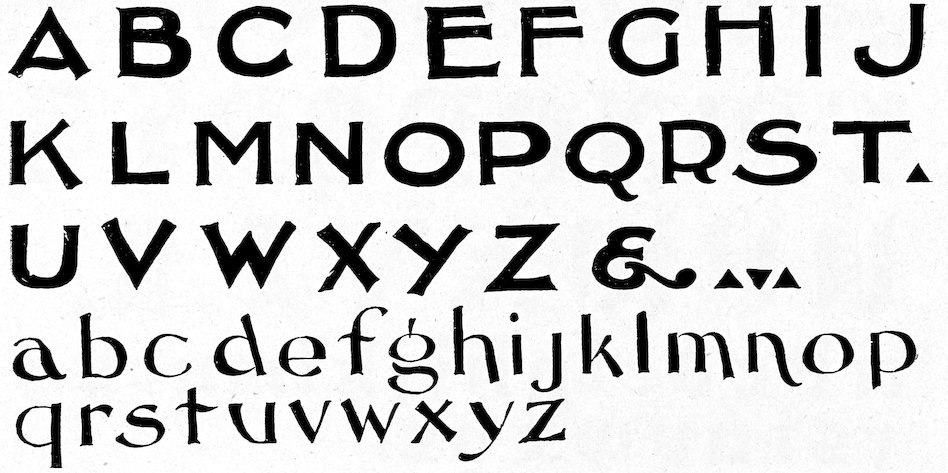 ABCDEFGHIJ
KLMNOPQRST
UVWXYZ&
abcdefghijklmnop
qrstuvwxyz